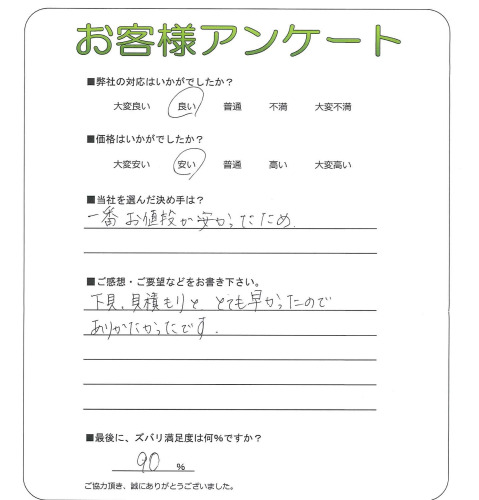 お客様アンケート
■弊社の対応はいかがでしたか？
大変良い 良い 普通 不満 大変不満
■価格はいかがでしたか？
大変安い 安い 普通 高い 大変高い
■当社を選んだ決め手は？
一番お値段が安かったため.
■ご感想・ご要望などをお書き下さい。
下見、見積もりと とても早かったので
ありがたかったです.
■最後に、ズバリ満足度は何%ですか？
90 %
ご協力頂き、誠にありがとうございました。